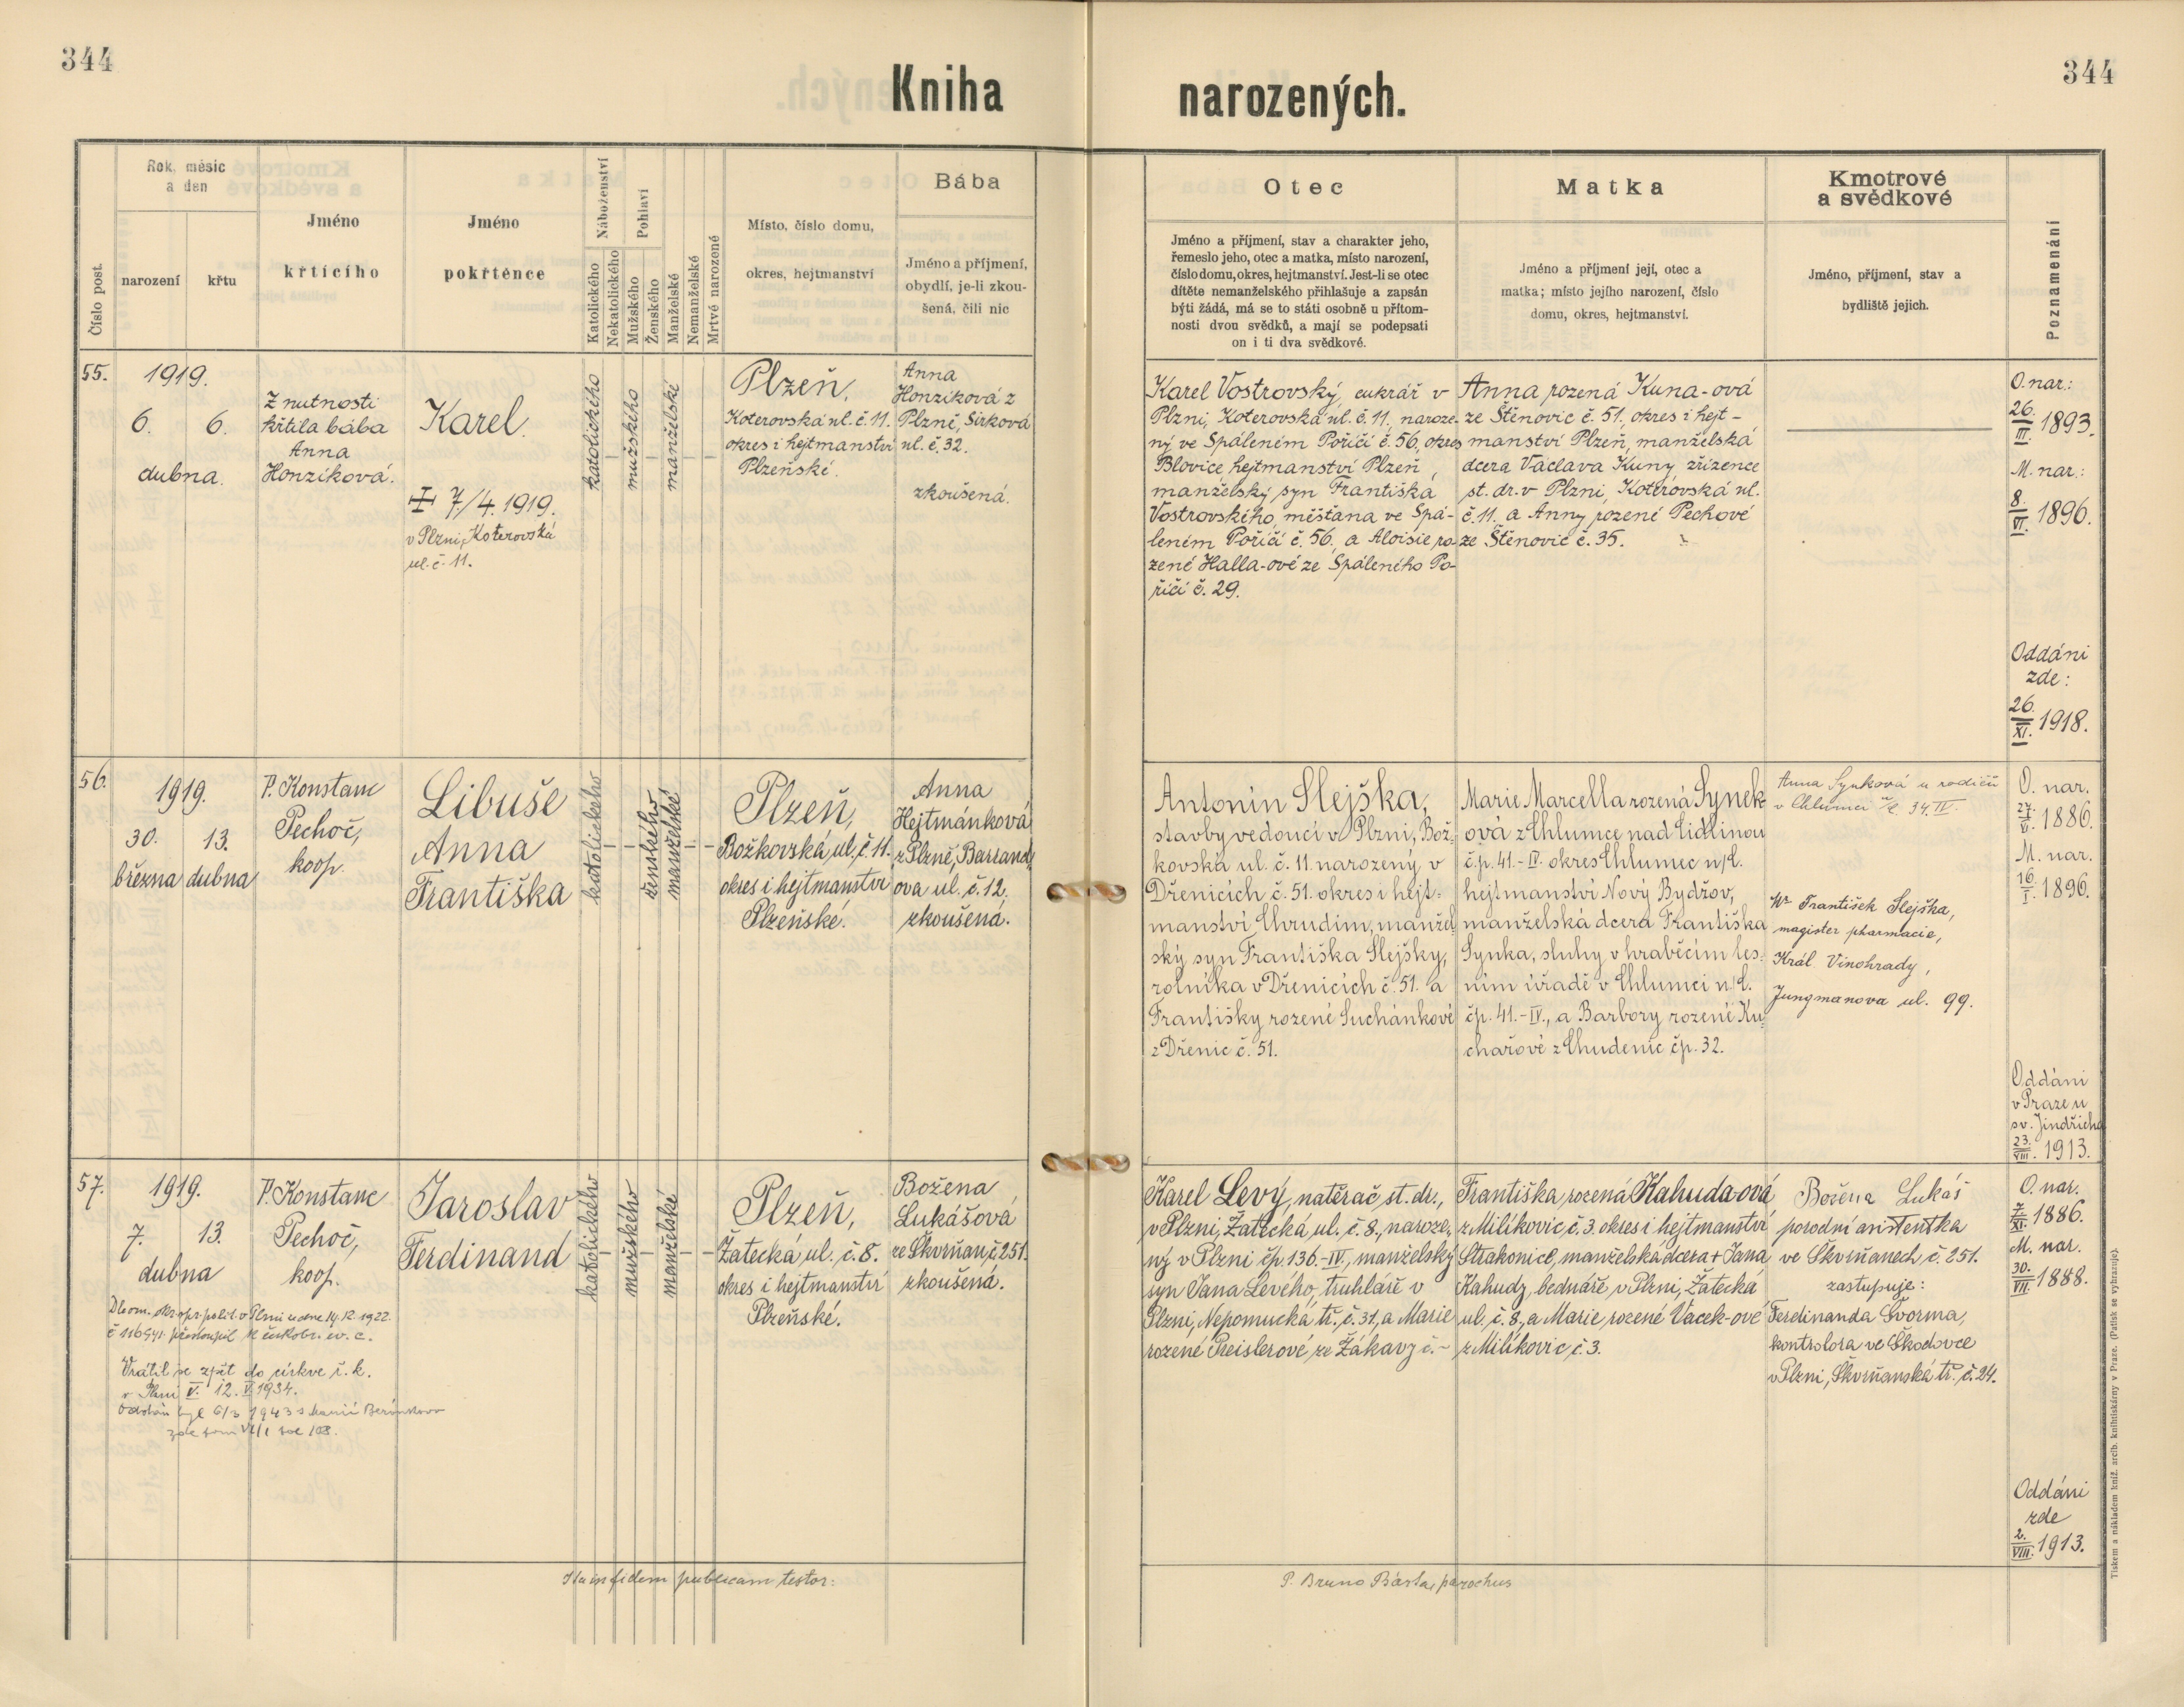 344
344
Kniha narozených.
Číslo post.
Rok, měsíc
a den
narození
křtu
Jméno
křtícího
Jméno
pokřtěnce
Náboženství
Katolického
Nekatolického
Pohlaví
Mužského
Ženského
Manželské
Nemanželské
Mrtvě narozené
Místo, číslo domu,
okres, hejtmanství
Bába
Jméno a příjmení,
obydlí, je-li zkou-
šená, čili nic
Otec
Jméno a příjmení, stav a charakter jeho,
řemeslo jeho, otec a matka, místo narození,
číslo domu, okres, hejtmanství. Jest-li se otec
dítěte nemanželského přihlašuje a zapsán
býti žádá, má se to státi osobně u přítom-
nosti dvou svědků, a mají se podepsati
on i ti dva svědkové.
Matka
Jméno a příjmení její, otec a
matka; místo jejího narození, číslo
domu, okres, hejtmanství.
Kmotrové
a svědkové
Jméno, příjmení, stav a
bydliště jejich.
Poznamenání
55.
1919.
6. 6.
dubna.
Z nutnosti
křtila bába
Anna
Honzíková.
Karel.
7/4. 1919.
v Plzni, Koterovská
ul. č. 11.
katolického
mužského
manželské
Plzeň,
Koterovská ul. č. 11.
okres i hejtmanství
Plzeňské.
Anna
Honzíková z
Plzně, Sirková
ul. č. 32.
zkoušená.
Karel Vostrovský, cukrář v
Plzni, Koterovská ul. č. 11., naroze-
ný ve Spáleném Poříčí č. 56, okres
Blovice hejtmanství Plzeň,
manželský syn Františka
Vostrovského, měšťana ve Spá-
leném Poříčí č. 56. a Aloisie ro-
zené Halla-ové ze Spáleného Po-
říčí č. 29.
Anna rozená Kuna-ová
ze Štěnovic č. 51. okres i hejt-
manství Plzeň, manželská
dcera Václava Kuny, zřízence
st. dr. v Plzni, Koterovská ul.
č. 11. a Anny rozené Pechové
ze Štěnovic č. 35.
O. nar.:
26.
III. 1893.
M. nar.:
8.
VI. 1896.
Oddáni
zde:
26.
XI. 1918.
56.
1919.
30. 13.
března dubna
P. Konstanc
Pechoč,
koop.
Libuše
Anna
Františka
katolického
ženského
manželské
Plzeň,
Božkovská ul. č. 11.
okres i hejtmanství
Plzeňské.
Anna
Hejtmánková
z Plzně, Barrand-
ova ul. č. 12.
zkoušená.
Antonín Slejška,
stavbyvedoucí v Plzni, Bož-
kovská ul. č. 11. narozený v
Dřenicích č. 51. okres i hejt-
manství Chrudim, manžel-
ský syn Františka Slejšky,
rolníka v Dřenicích č. 51. a
Františky rozené Suchánkové
z Dřenic č. 51.
Marie Marcella rozená Synek
ová z Chlumce nad Cidlinou
č.p. 41.-IV. okres Chlumec n/C.
hejtmanství Nový Bydžov,
manželská dcera Františka
Synka, sluhy v hraběcím les-
ním úřadě v Chlumci n/C.
čp. 41.-IV., a Barbory rozené Ku-
chařové z Chudenic čp. 32.
Anna Synková u rodičů
v Chlumci 34 IV.
František Slejška,
magister pharmacie,
Král. Vinohrady,
Jungmanova ul. 99.
O. nar.
27.
V. 1886.
M. nar.
16.
I. 1896.
Oddáni
v Praze u
sv. Jindřicha
23.
VIII. 1913.
57.
1919.
7. 13.
dubna
P. Konstanc
Pechoč,
koop.
Jaroslav
Ferdinand
katolického
mužského
manželské
Plzeň,
Žatecká ul. č. 8.
okres i hejtmanství
Plzeňské.
Božena
Lukášová
ze Skvrňan, č. 251.
zkoušená.
Karel Levý, natěrač st. dr.,
v Plzni, Žatecká ul. č. 8., naroze-
ný v Plzni čp. 136.-IV., manželský
syn Jana Levého, truhláře v
Plzni, Nepomucká tř. č. 31, a Marie
rozené Preislerové ze Žákavy č. -
Františka rozená Kahuda-ová
z Milíkovic č. 3. okres i hejtmanství
Strakonice, manželská dcera + Jana
Kahudy, bednáře v Plzni, Žatecká
ul. č. 8., a Marie rozené Vacek-ové
z Milíkovic, č. 3.
Božena Lukáš
porodní asistentka
ve Skvrňanech, č. 251.
zastupuje:
Ferdinanda Švorma,
kontrolora ve Škodovce
v Plzni, Skvrňanská tř. č. 24.
O. nar.
7.
XI. 1886.
M. nar.
30.
VII. 1888.
Oddáni
zde
2.
VIII. 1913.
Dle ozn. okr. spr. polit. v Plzni ze dne 14. 12. 1922.
č 116941 přestoupil k českobr. ev. c.
Vrátil se zpět do církve ř. k.
v Plzni 12. V 1934.
Oddán byl 6/3 1943 s Marií Beránkovou
zde
Ita in fidem publicam testor:
P. Bruno Bárta, parochus
Tiskem a nákladem kníž. arcib. knihtiskárny v Praze. (Patisk se vyhrazuje).